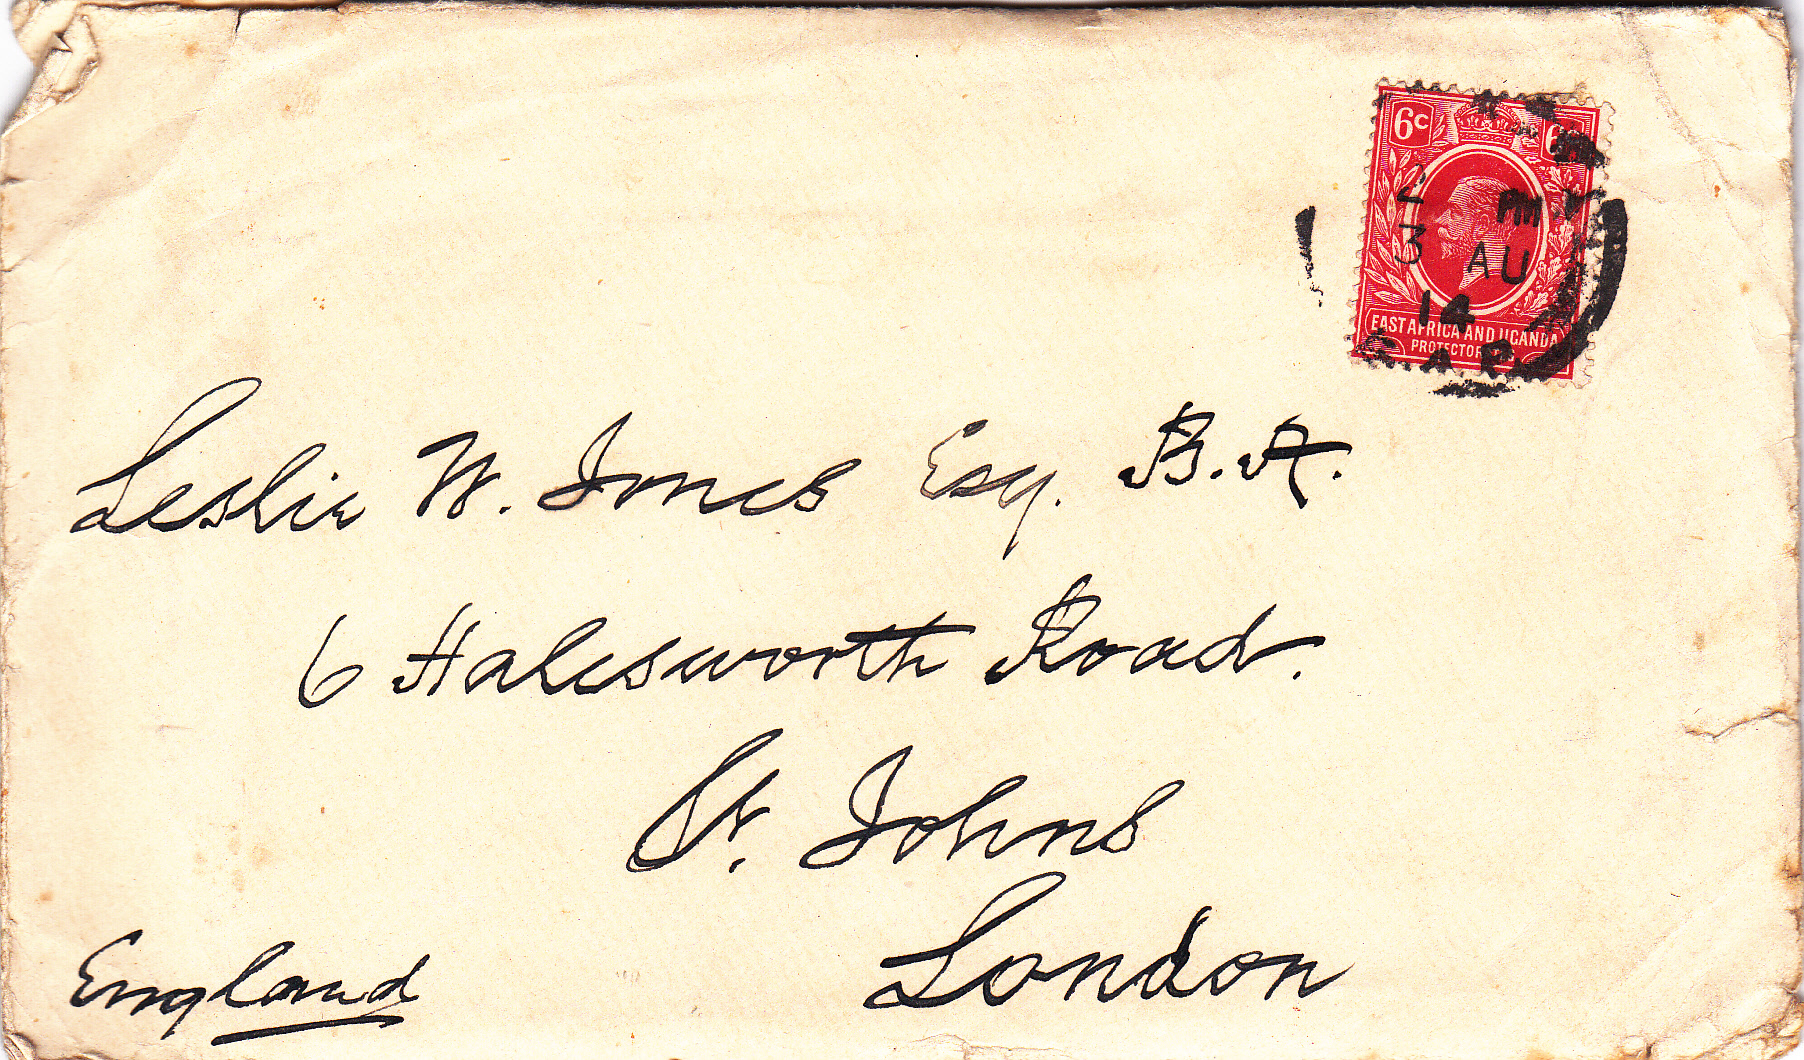 6c
2 PM
3 AU
14
EAST AFRICA AND UGANDA
Leslie W. Jones Esq. B.A.
6 Halesworth Road.
St. Johns
London
England